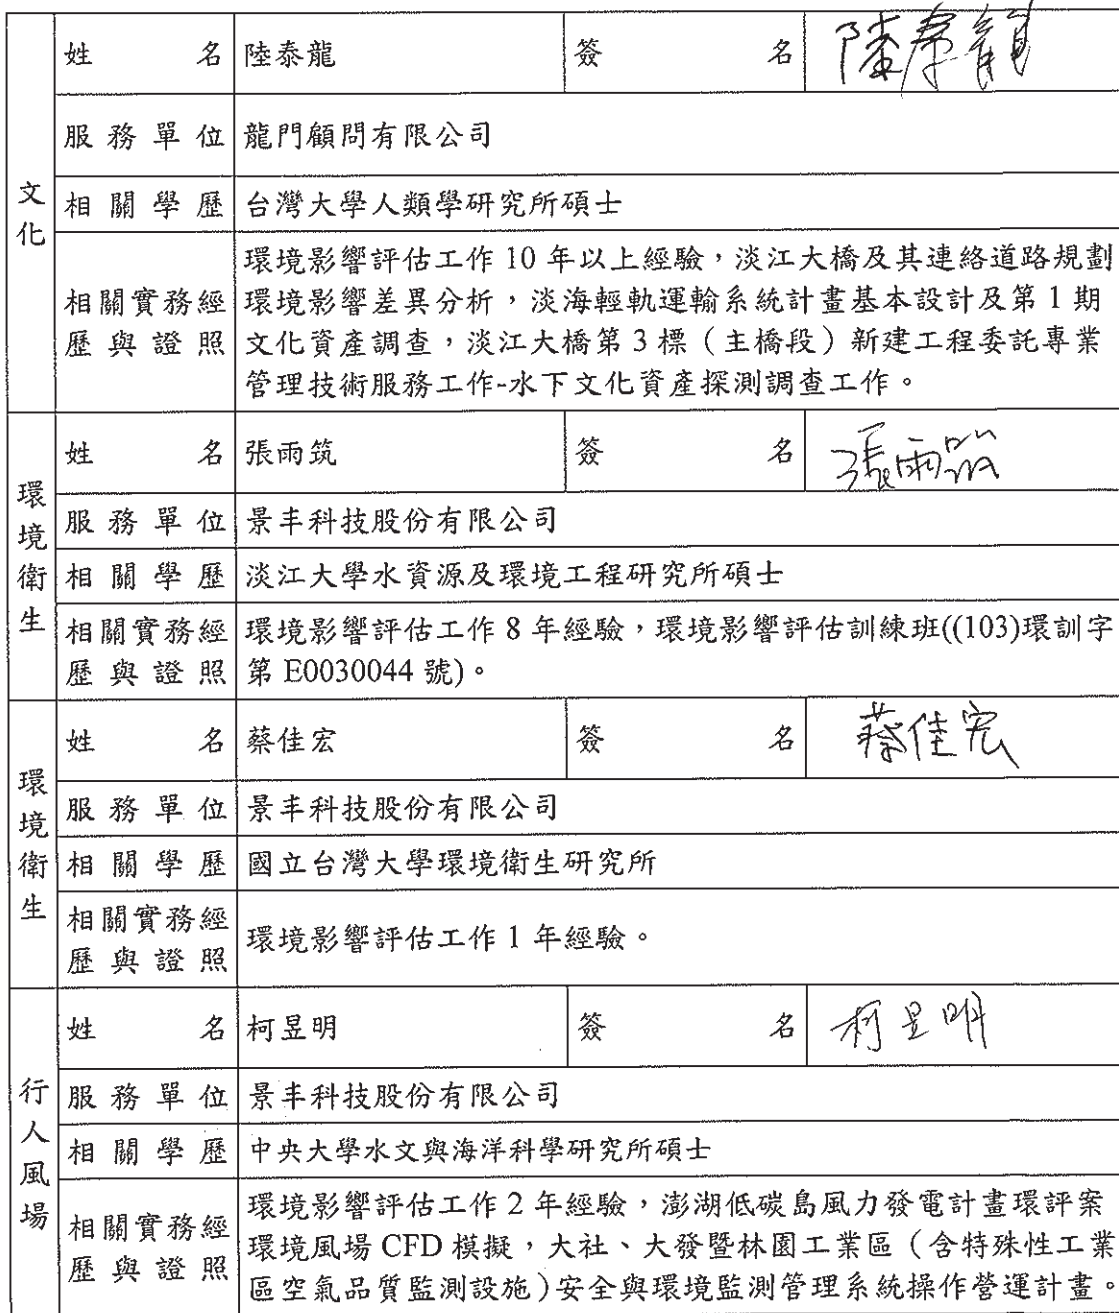 文化
姓名 陸泰龍 簽名 陸泰龍
服務單位 龍門顧問有限公司
相關學歷 台灣大學人類學研究所碩士
相關實務經歷與證照
環境影響評估工作 10 年以上經驗，淡江大橋及其連絡道路規劃
環境影響差異分析，淡海輕軌運輸系統計畫基本設計及第 1 期
文化資產調查，淡江大橋第 3 標（主橋段）新建工程委託專業
管理技術服務工作-水下文化資產探測調查工作。
環境衛生
姓名 張雨筑 簽名 張雨筑
服務單位 景丰科技股份有限公司
相關學歷 淡江大學水資源及環境工程研究所碩士
相關實務經歷與證照
環境影響評估工作 8 年經驗，環境影響評估訓練班((103)環訓字
第 E0030044 號)。
環境衛生
姓名 蔡佳宏 簽名 蔡佳宏
服務單位 景丰科技股份有限公司
相關學歷 國立台灣大學環境衛生研究所
相關實務經歷與證照
環境影響評估工作 1 年經驗。
行人風場
姓名 柯昱明 簽名 柯昱明
服務單位 景丰科技股份有限公司
相關學歷 中央大學水文與海洋科學研究所碩士
相關實務經歷與證照
環境影響評估工作 2 年經驗，澎湖低碳島風力發電計畫環評案
環境風場 CFD 模擬，大社、大發暨林園工業區（含特殊性工業
區空氣品質監測設施）安全與環境監測管理系統操作營運計畫。